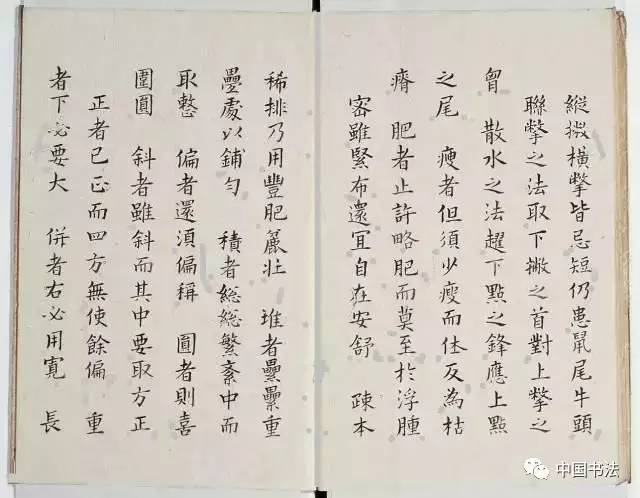 縱撇橫撆皆忌短仍患鼠尾牛頭
聯撆之法取下撇之首對上撆之
胷　散水之法趯下點之鋒應上點
之尾　瘦者但須少瘦而体反為枯
瘠　肥者止許略肥而莫至於浮腫
密雖緊布還宜自在安舒　疎本
稀排乃用豐肥麄壯　堆者壘壘重
疊處以鋪勻　積者総総繁紊中而
取整　偏者還須偏稱　圓者則喜
圍圓　斜者雖斜而其中要取方正
正者已正而四方無使餘偏　重
者下必要大　併者右必用寬　長
中国书法